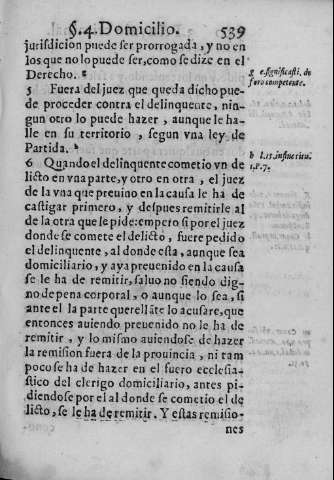 §.4. Domicilio. 539
jurisdicion puede ser prorrogada, y no en
los que no lo puede ser, como se dize en el
Derecho. g
5 Fuera del juez que queda dicho pue-
de proceder contra el delinquente, nin-
gun otro lo puede hazer, aunque le ha-
lle en su territorio, segun vna ley de
Partida. h
6 Quando el delinquente cometio vn de-
licto en vna parte, y otro en otra, el juez
de la vna que preuino en la causa le ha de
castigar primero, y despues remitirle al
de la otra que le pide: empero si por el juez
donde se comete el delicto, fuere pedido
el delinquente, al donde esta, aunque sea
domiciliario, y aya preuenido en la causa
se le ha de remitir, saluo no siendo dig-
no de pena corporal, o aunque lo sea, si
ante el la parte querellãte lo acusare, que
entonces auiendo preuenido no le ha de
remitir, y lo mismo auiendose de hazer
la remision fuera de la prouincia, ni tam
poco se ha de hazer en el fuero ecclesia-
stico del clerigo domiciliario, antes pi-
diendose por el al donde se cometio el de
licto, se le ha de remitir. Y estas remisio-
nes
g c. significasti. de
foro competente.
h l.15. in fine titu.
1.P.7.